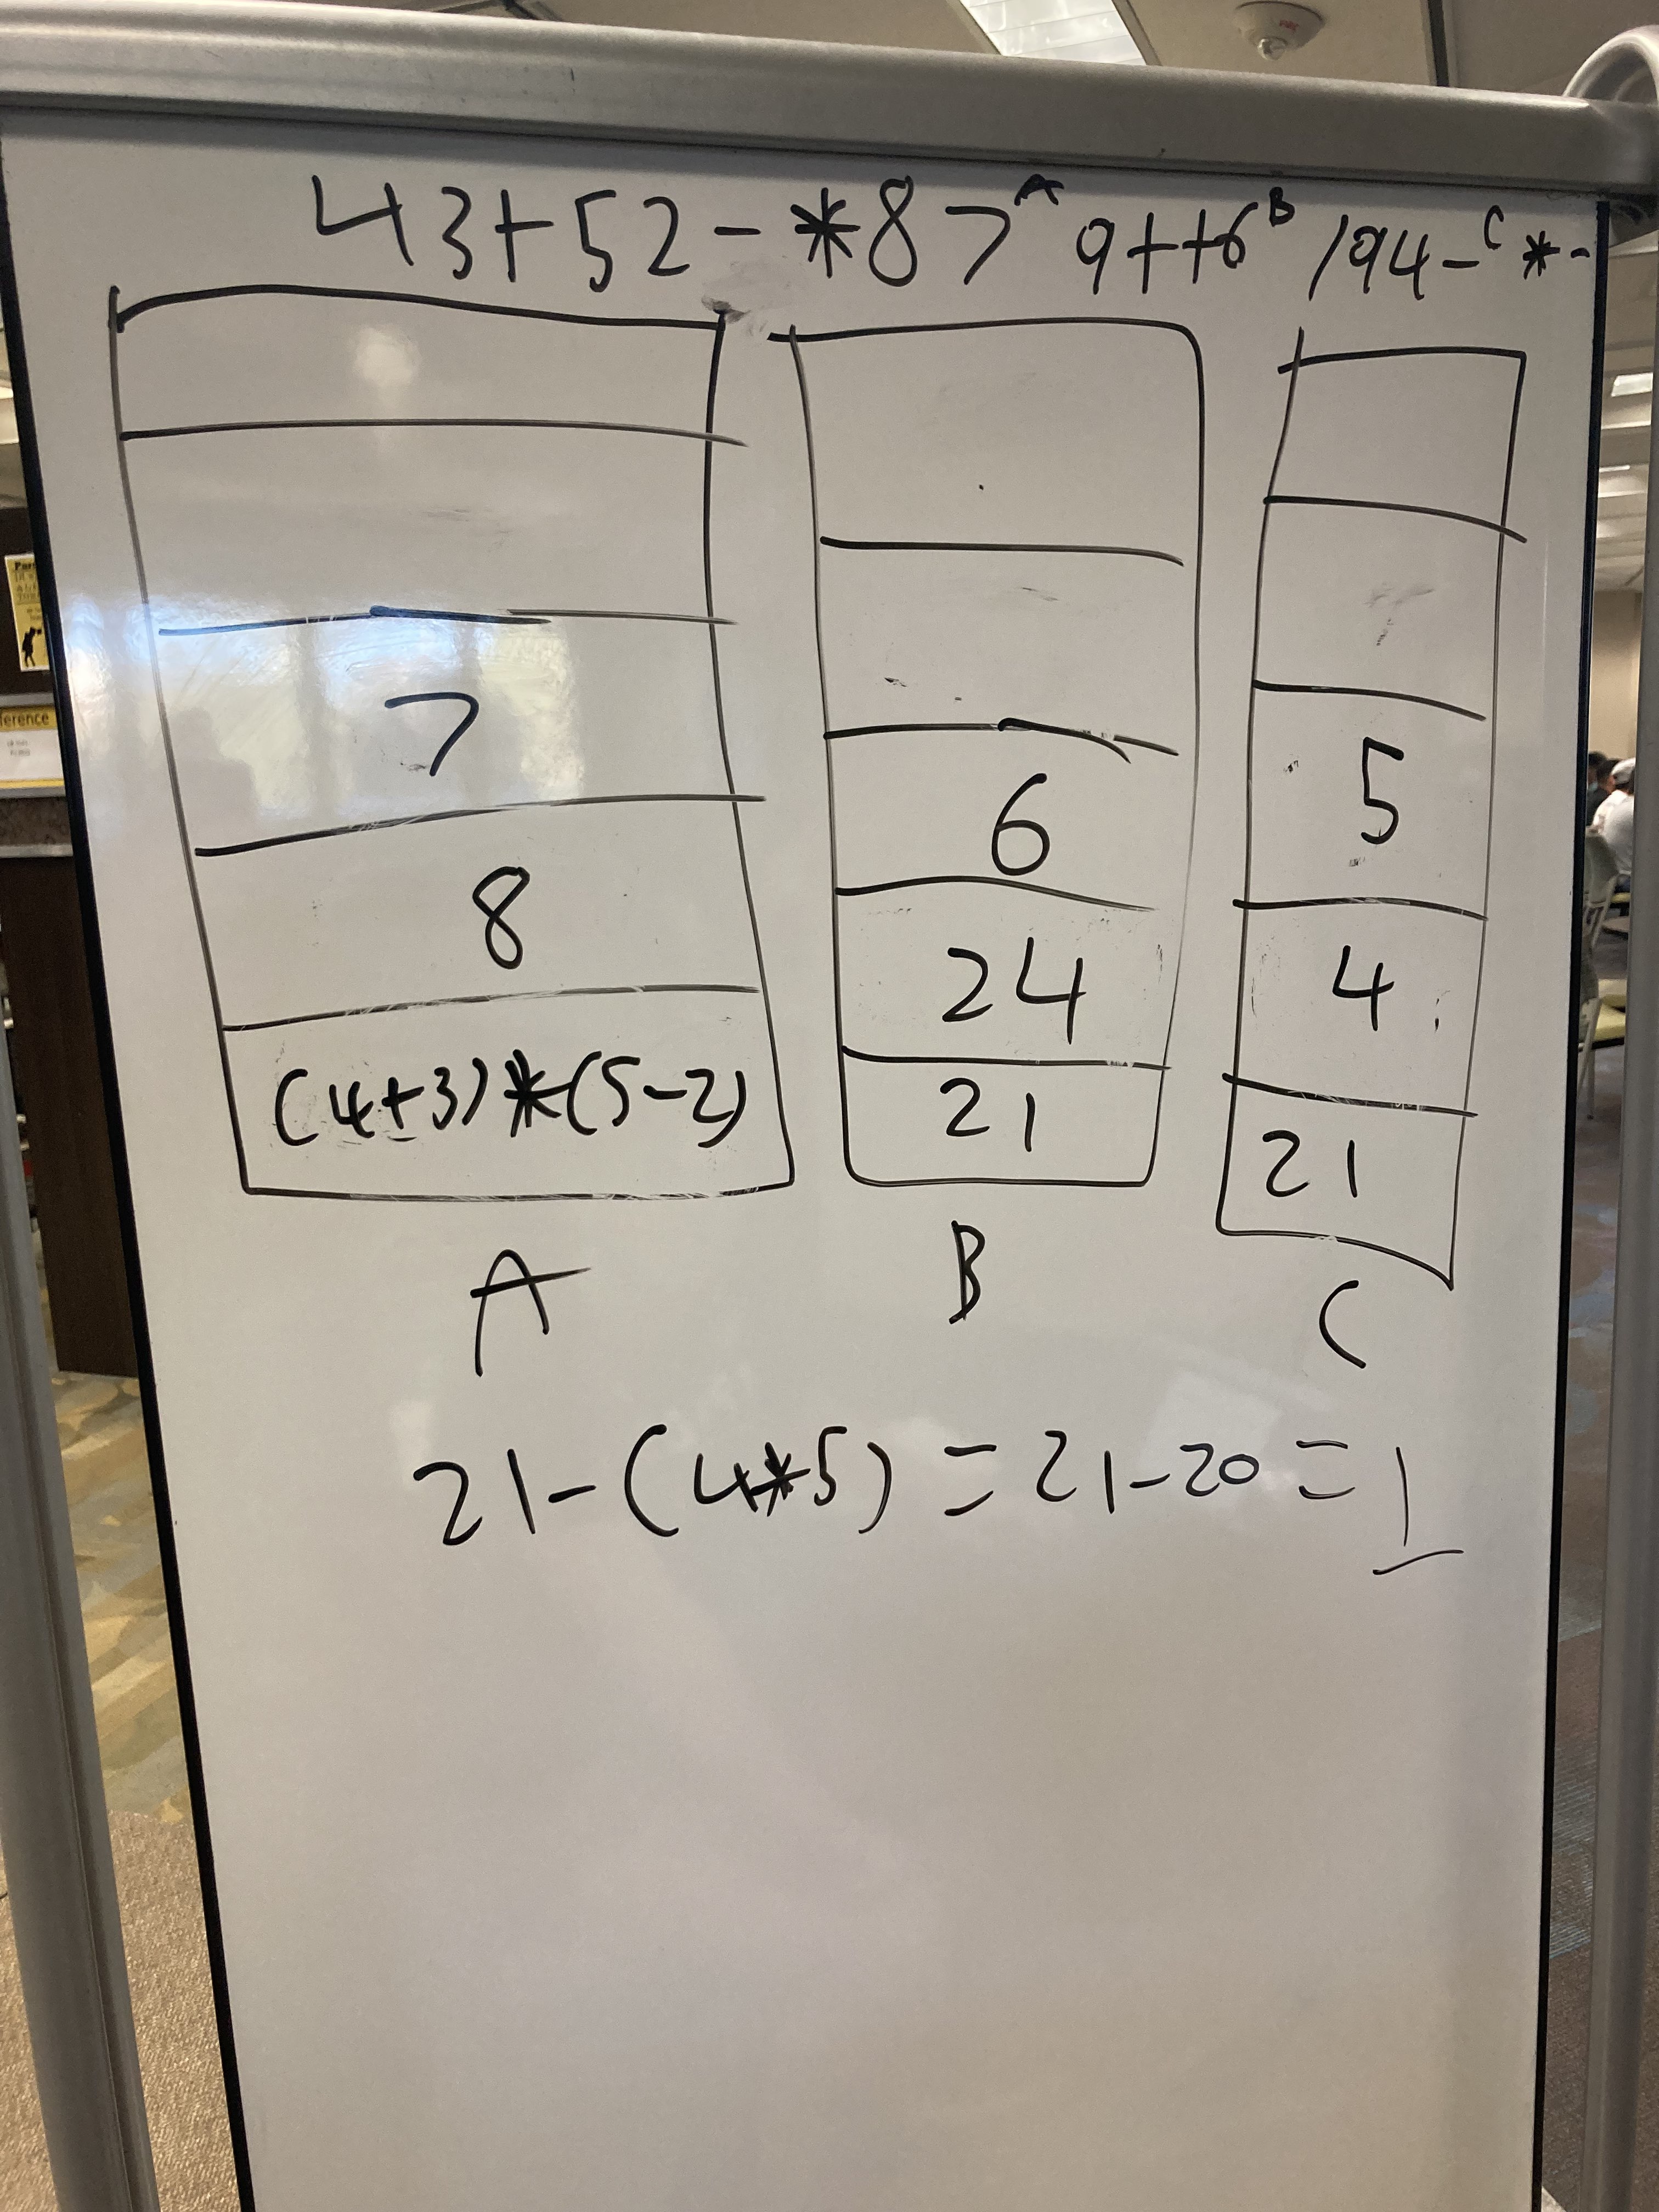 43+52-*87^A 9++6^B /94-^C*-
7
8
(4+3)*(5-2)
A
6
24
21
B
5
4
21
C
21-(4*5)=21-20=1
ference